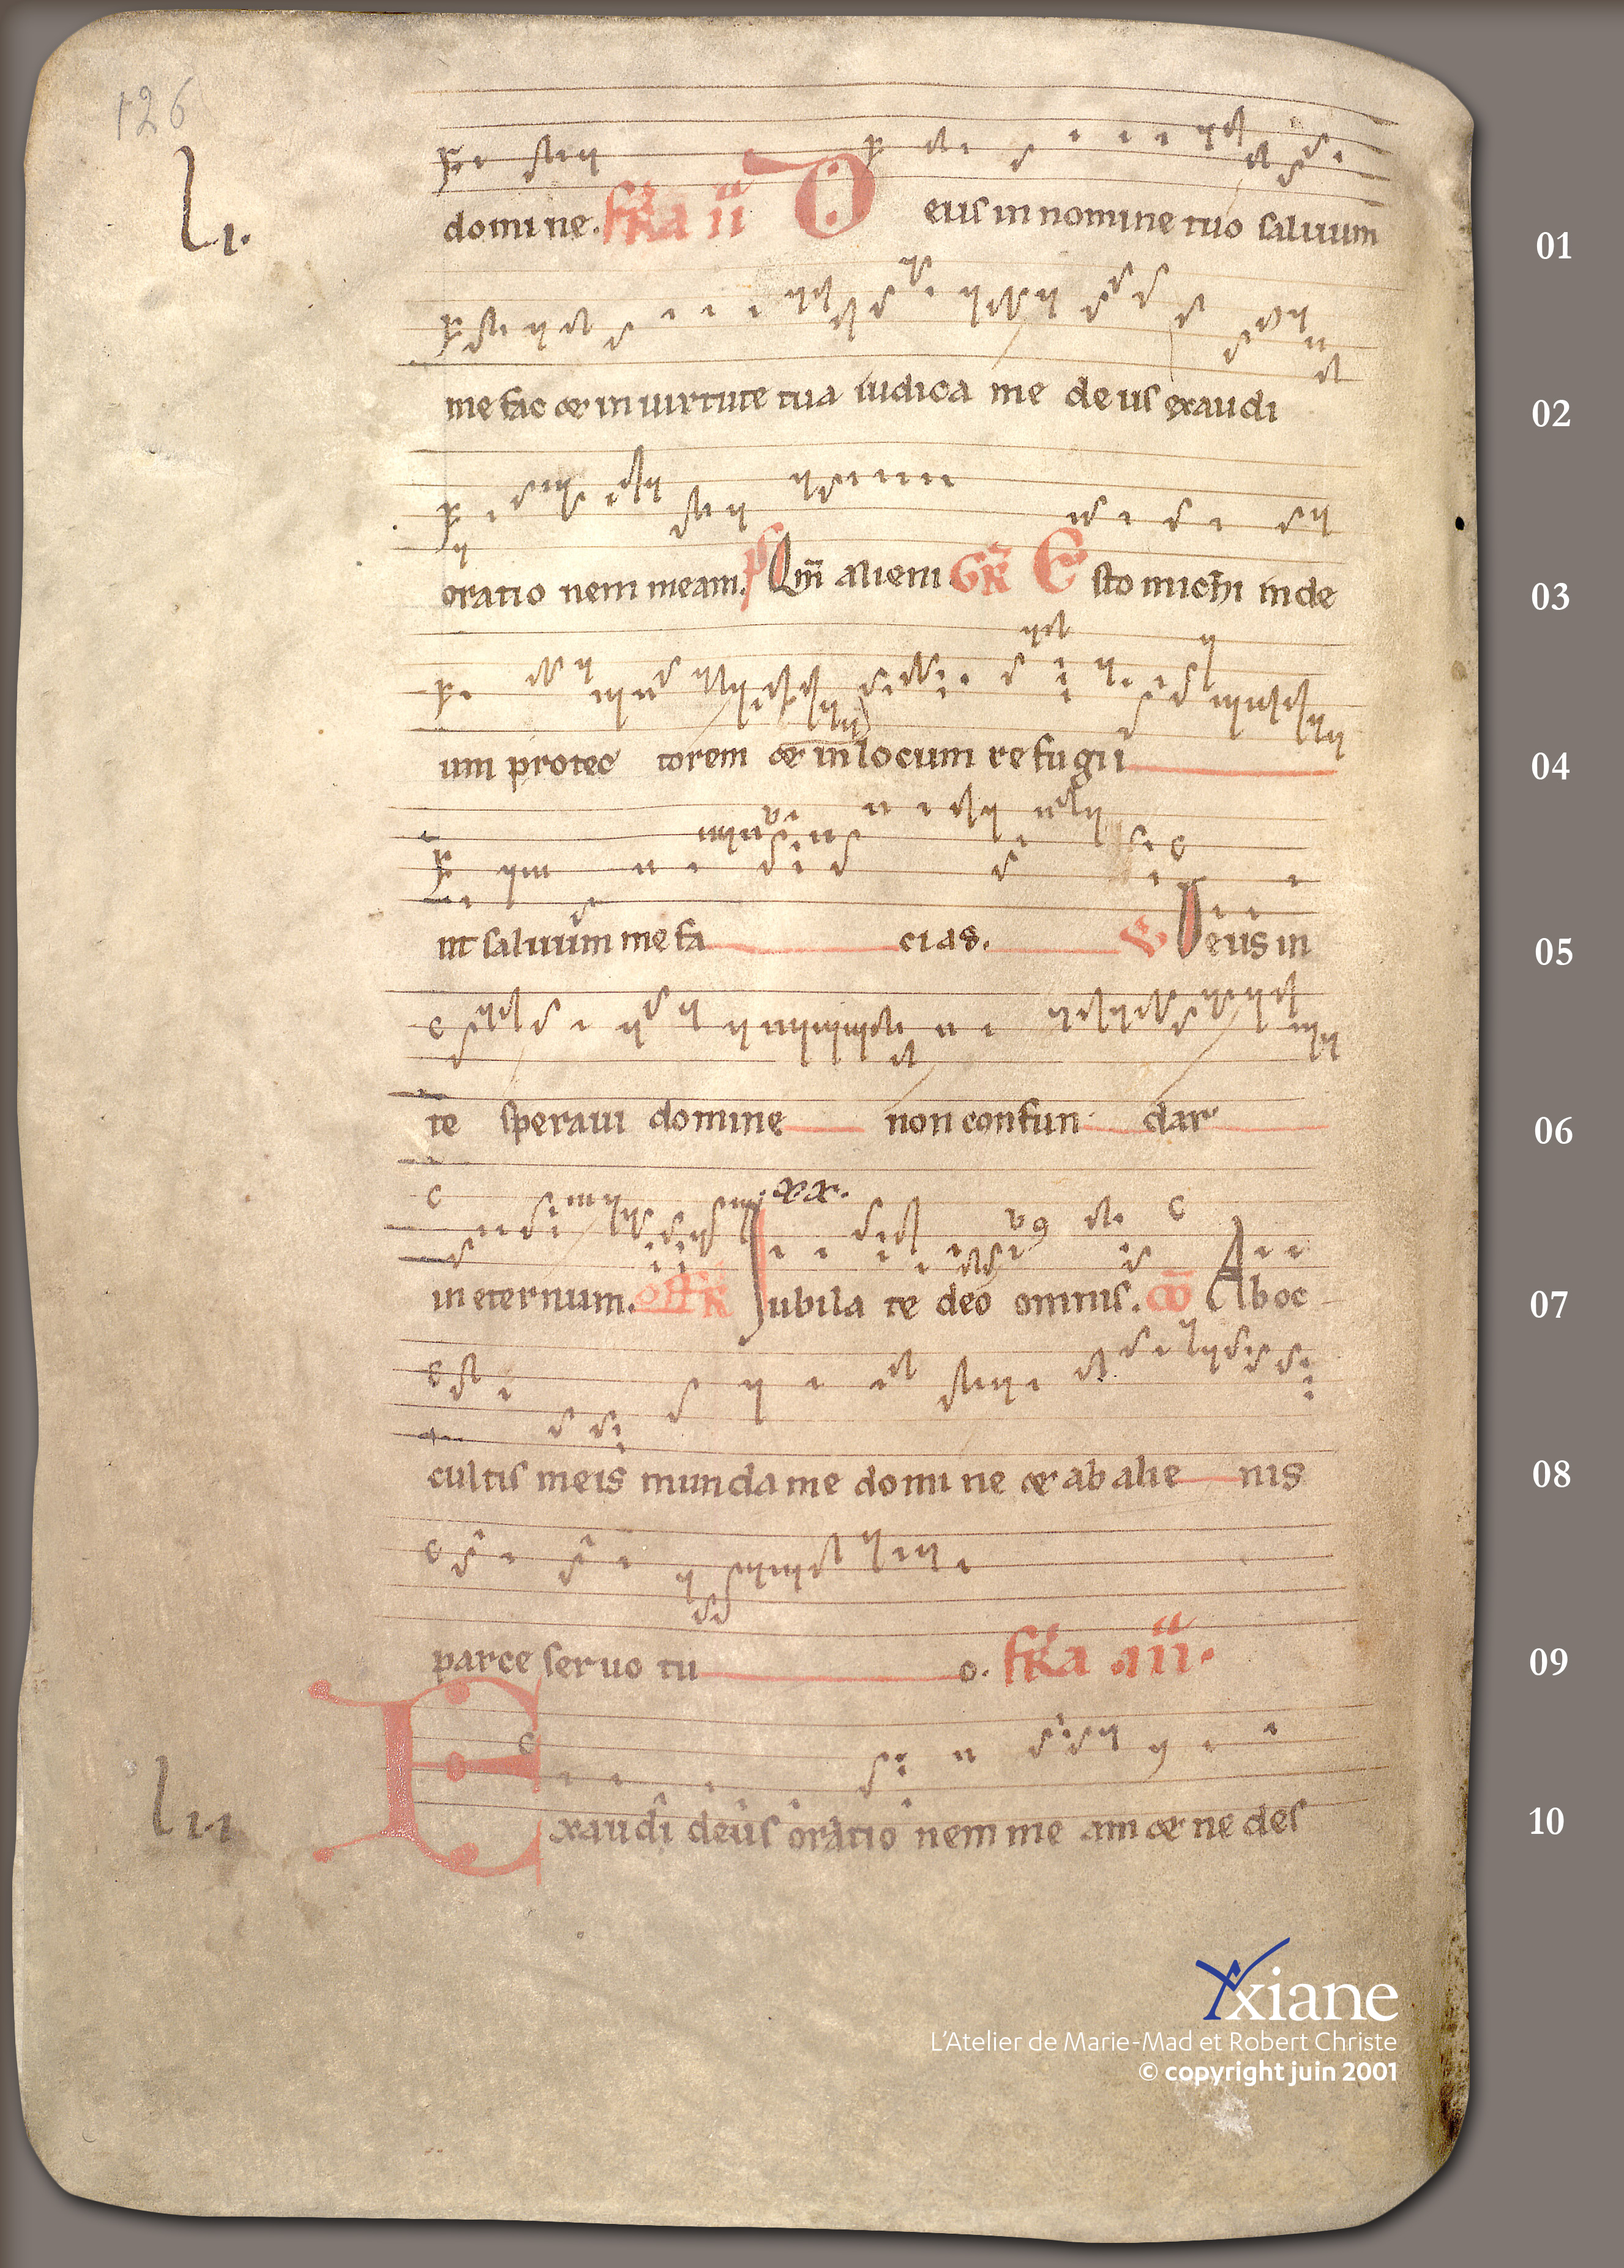 126
l.ı.
domine. fr̄a ii D eus in nomine tuo saluum
01
me fac & in uirtute tua iudica me deus exaudi
02
oratio nem meam. ps Qm̄ alieni GR̄ E sto michi in de
03
um protec torem & in locum refugii
04
ut saluum me fa cias. V Deus in
05
te speraui domine non confun dar
06
.xx.
in eternum. off R Iubila te deo omnis. cō Ab oc
07
cultis meis munda me domine & ab alie nis
08
parce seruo tu o. fr̄a .iii.
09
l.ı.ı
E xaudi deus oratio nem me am & ne des
10
xiane
L'Atelier de Marie-Mad et Robert Christe
© copyright juin 2001